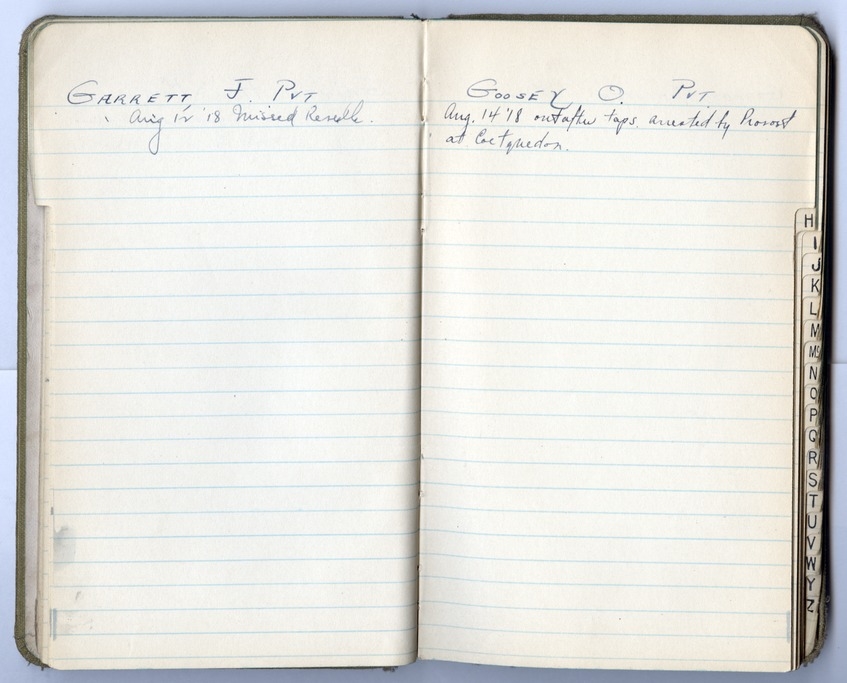 GARRETT, J. PVT
Aug 12 '18 Missed Reveille.
GOOSEY O. PVT
Aug. 14 '18 out after taps. arrested by Provost
at Coetquedon.
H
I
J
K
L
M
Mc
N
O
P
Q
R
S
T
U
V
W
Y
Z